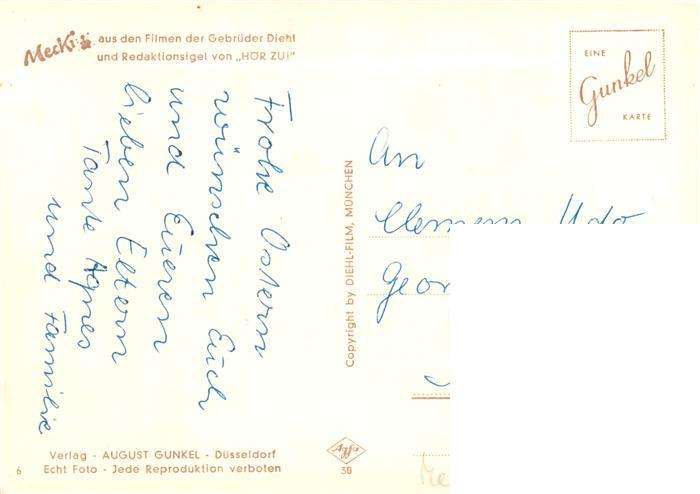 Mecki aus den Filmen der Gebrüder Diehl
und Redaktionsigel von „HÖR ZU!"
EINE
Gunkel
KARTE
Frohe Ostern
wünschen Euch
und Eueren
lieben Eltern
Tante Agnes
und Familie
Copyright by DIEHL-FILM, MÜNCHEN
An
Clemens Udo
Geor
Verlag - AUGUST GUNKEL - Düsseldorf
6 Echt Foto - Jede Reproduktion verboten
Agfa
30